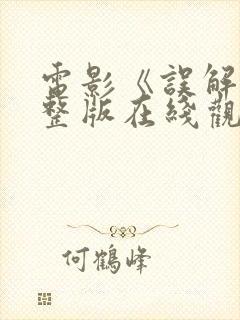 電影《誤解
整版在綫觀
何鶴峰